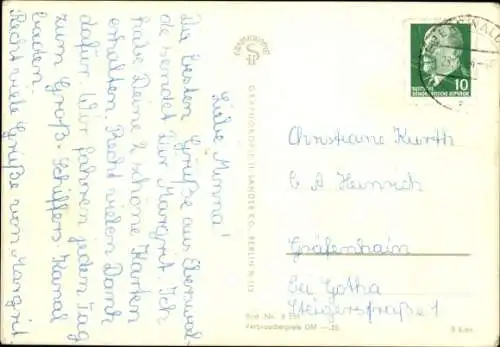 Liebe Minna!
Die besten Grüße aus Eberswal-
de sendet Dir Margrit. Ich
habe Deine 2 schöne Karten
erhalten. Recht vielen Dank
dafür. Wir fahren jeden Tag
zum Groß-Schiffers-Kanal
baden.
Recht viele Grüße von Margrit
GRAPHOKOPIE H. SANDER KG., BERLIN N 113
Bild-Nr.
Verbraucherpreis DM —,20
DEUTSCHE
DEMOKRATISCHE REPUBLIK
10
Christiane Kurth
b A Heinrich
Gräfenhain
bei Gotha
Steigerstraße 1